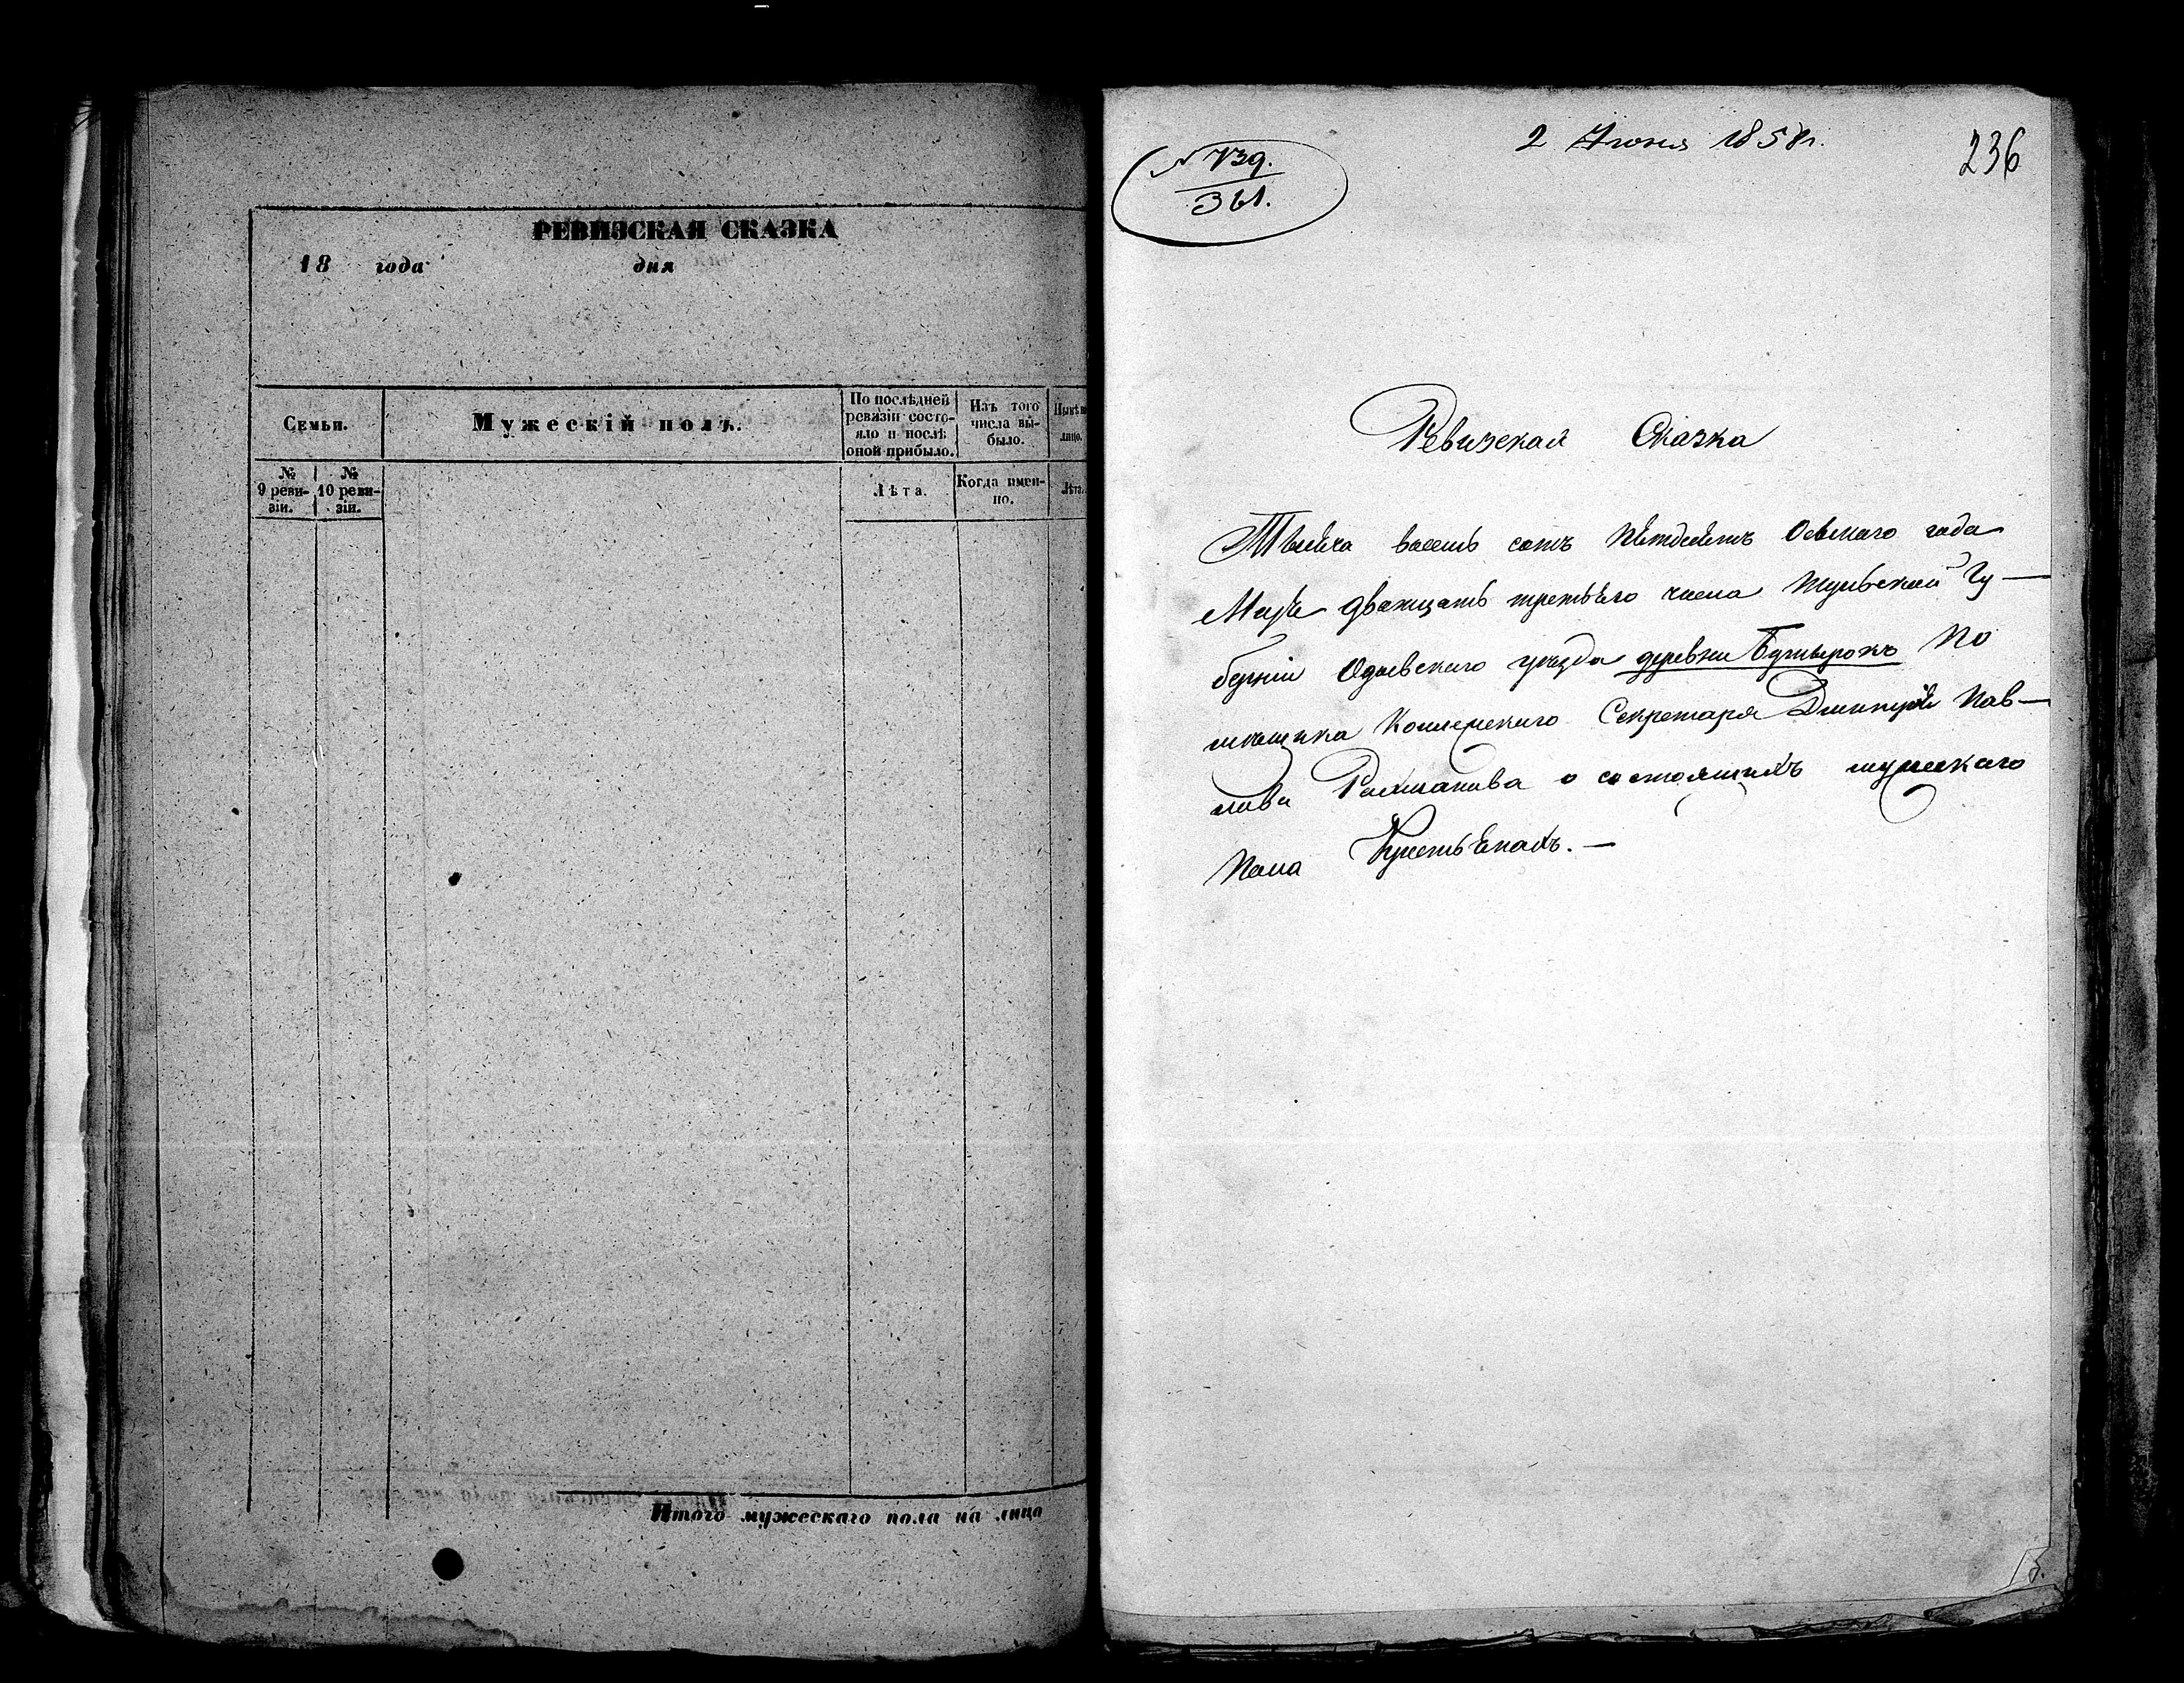 РЕВИЗСКАЯ СКАЗКА
18 года дня
Семьи.
Мужескій полъ.
По послѣдней
ревизіи состо-
яло и послѣ
оной прибыло.
Изъ того
числа вы-
было.
лицо.
№ 9 реви-
зіи.
№ 10 реви-
зіи.
Лѣта.
Когда имен-
но.
Лѣта.
Итого мужескаго пола на лицо
N 739.
361.
2 Июня 1858 г.
236
Ревизская Сказка
восемь сотъ года
дватцать третьяго числа Тульской Гу-
берніи Одоевскаго уезда деревни Бутырокъ По
мѣщика Коллежскаго Секретаря Дмитрія Пав-
лова о состоящихъ мужескаго
Пола